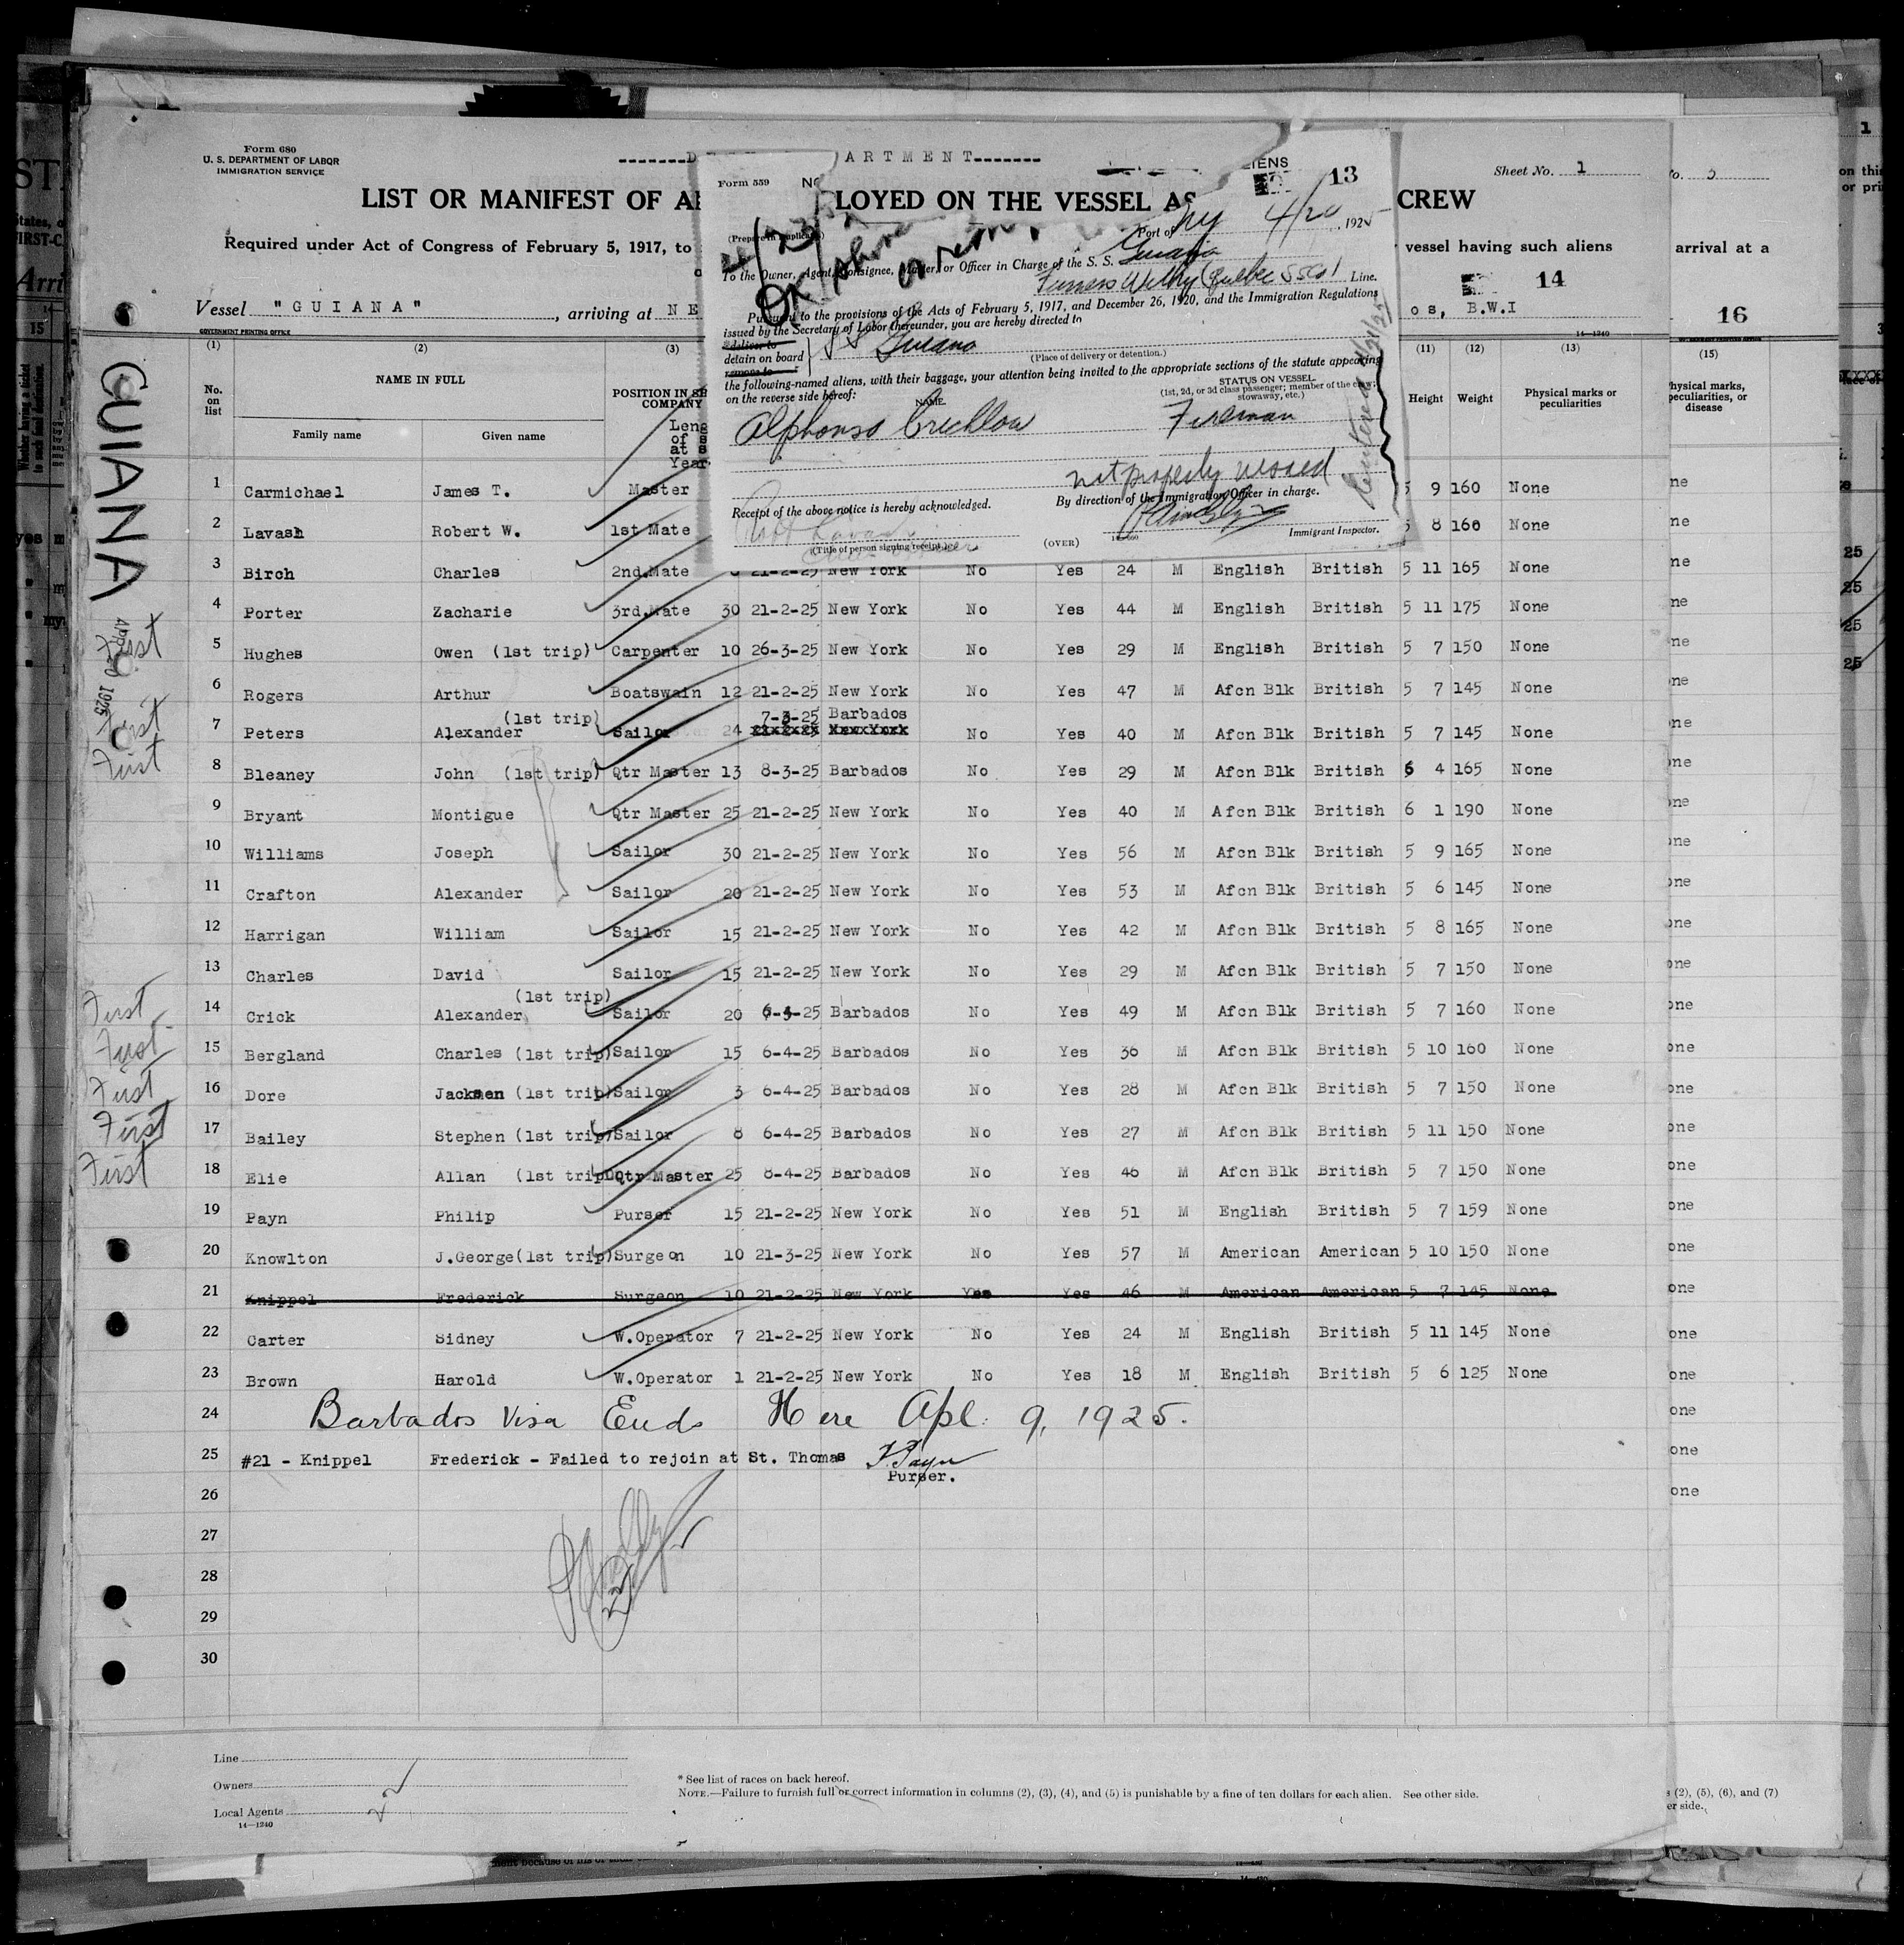 Form 680
U. S. DEPARTMENT OF LABOR
IMMIGRATION SERVICE
ARTMENT-------
Sheet No. 1
LIST OR MANIFEST OF
LOYED ON THE VESSEL AS
CREW
Required under Act of Congress of February 5, 1917, to
vessel having such aliens
arrival at a
14
Vessel "GUIANA", arriving at NE
os, B.W.I
16
GOVERNMENT PRINTING OFFICE
14—1240
Form 559
13
(Prepare in duplicate)
Port of NY 4/20, 1925
To the Owner, Agent, Consignee, Master, or Officer in Charge of the S. S. Guiana
Furness Withy (Quebec SSCo) Line.
Pursuant to the provisions of the Acts of February 5, 1917, and December 26, 1920, and the Immigration Regulations
issued by the Secretary of Labor thereunder, you are hereby directed to
deliver to
detain on board
remove to
SS Guiana
(Place of delivery or detention.)
the following-named aliens, with their baggage, your attention being invited to the appropriate sections of the statute appearing
on the reverse side hereof:
NAME.
STATUS ON VESSEL.
(1st, 2d, or 3d class passenger; member of the crew; stowaway, etc.)
Alphonso Crichlow Fireman
not properly visaed
By direction of the Immigration Officer in charge.
Receipt of the above notice is hereby acknowledged.
(Title of person signing receipt.)
(OVER)
Immigrant Inspector.
GUIANA
APR 20 1925
(1) (2) (3) (11) (12) (13) (15)
No. on list
NAME IN FULL
Family name Given name
POSITION IN
COMPANY
Height Weight
Physical marks or peculiarities
1 Carmichael James T. Master 5 9 160 None
2 Lavash Robert W. 1st Mate 5 8 160 None
3 Birch Charles 2nd.Mate 21-2-25 New York No Yes 24 M English British 5 11 165 None
4 Porter Zacharie 3rd.Mate 30 21-2-25 New York No Yes 44 M English British 5 11 175 None
First 5 Hughes Owen (1st trip) Carpenter 10 26-3-25 New York No Yes 29 M English British 5 7 150 None
6 Rogers Arthur Boatswain 12 21-2-25 New York No Yes 47 M Afcn Blk British 5 7 145 None
First 7 Peters Alexander (1st trip) Sailor 24 7-3-25 Barbados No Yes 40 M Afcn Blk British 5 7 145 None
First 8 Bleaney John (1st trip) Qtr Master 13 8-3-25 Barbados No Yes 29 M Afcn Blk British 6 4 165 None
9 Bryant Montigue Qtr Master 25 21-2-25 New York No Yes 40 M Afcn Blk British 6 1 190 None
10 Williams Joseph Sailor 30 21-2-25 New York No Yes 56 M Afcn Blk British 5 9 165 None
11 Crafton Alexander Sailor 20 21-2-25 New York No Yes 53 M Afcn Blk British 5 6 145 None
12 Harrigan William Sailor 15 21-2-25 New York No Yes 42 M Afcn Blk British 5 8 165 None
13 Charles David Sailor 15 21-2-25 New York No Yes 29 M Afcn Blk British 5 7 150 None
First 14 Crick Alexander (1st trip) Sailor 20 6-4-25 Barbados No Yes 49 M Afcn Blk British 5 7 160 None
First 15 Bergland Charles (1st trip) Sailor 15 6-4-25 Barbados No Yes 36 M Afcn Blk British 5 10 160 None
First 16 Dore Jacksen (1st trip) Sailor 3 6-4-25 Barbados No Yes 28 M Afcn Blk British 5 7 150 None
First 17 Bailey Stephen (1st trip) Sailor 8 6-4-25 Barbados No Yes 27 M Afcn Blk British 5 11 150 None
First 18 Elie Allan (1st trip) Qtr Master 25 8-4-25 Barbados No Yes 46 M Afcn Blk British 5 7 150 None
19 Payn Philip Purser 15 21-2-25 New York No Yes 51 M English British 5 7 159 None
20 Knowlton J.George(1st trip) Surgeon 10 21-3-25 New York No Yes 57 M American American 5 10 150 None
21 Knippel Frederick Surgeon 10 21-2-25 New York Yes Yes 46 M American American 5 7 145 None
22 Carter Sidney W.Operator 7 21-2-25 New York No Yes 24 M English British 5 11 145 None
23 Brown Harold W.Operator 1 21-2-25 New York No Yes 18 M English British 5 6 125 None
24 Barbados Visa Ends Here Apl. 9, 1925.
25 #21 - Knippel Frederick - Failed to rejoin at St. Thomas P. Payn
Purser.
26
27
28
29
30
Line
Owners
Local Agents
14—1240
* See list of races on back hereof.
NOTE.—Failure to furnish full or correct information in columns (2), (3), (4), and (5) is punishable by a fine of ten dollars for each alien. See other side.
(2), (5), (6), and (7)
er side.